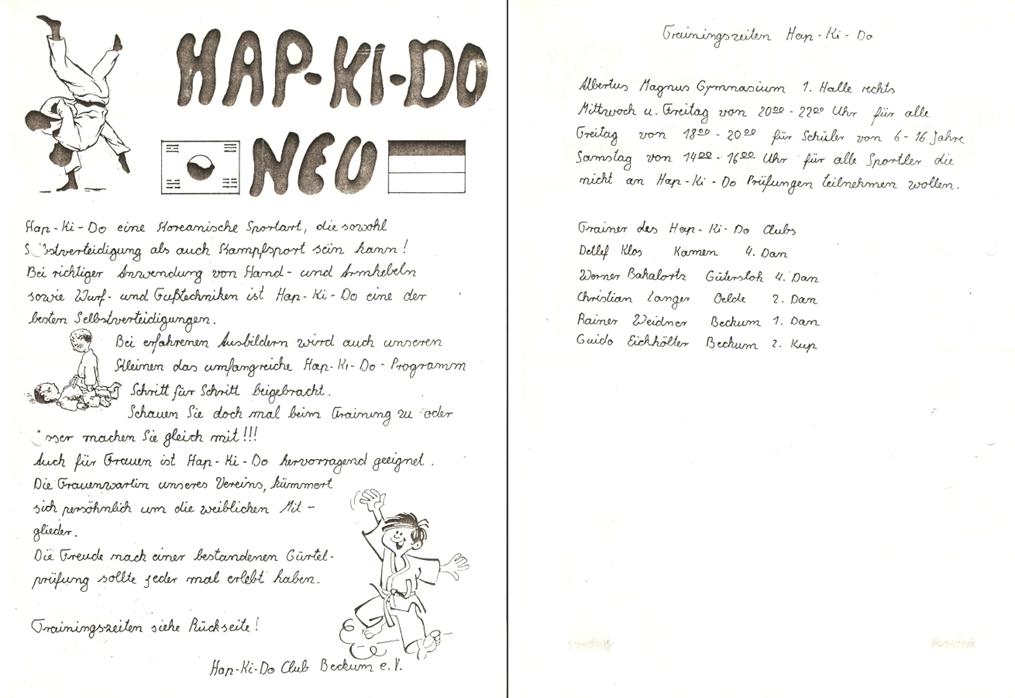 HAP-KI-DO
NEU
Hap-Ki-Do eine Koreanische Sportart, die sowohl
S  bstverteidigung als auch Kampfsport sein kann!
Bei richtiger Anwendung von Hand- und Armhebeln
sowie Wurf- und Fußtechniken ist Hap-Ki-Do eine der
besten Selbstverteidigungen.
Bei erfahrenen Ausbildern wird auch unseren
Kleinen das umfangreiche Hap-Ki-Do-Programm
Schritt für Schritt beigebracht.
Schauen Sie doch mal beim Training zu oder
machen Sie gleich mit!!!
Auch für Frauen ist Hap-Ki-Do hervorragend geeignet.
Die Frauenwartin unseres Vereins, kümmert
sich persöhnlich um die weiblichen Mit-
glieder.
Die Freude nach einer bestandenen Gürtel-
prüfung sollte jeder mal erlebt haben.
Trainingszeiten siehe Rückseite!
Hap-Ki-Do Club Beckum e.V.
Trainingszeiten Hap-Ki-Do
Albertus Magnus Gymnasium 1. Halle rechts
Mittwoch u. Freitag von 20⁰⁰-22⁰⁰ Uhr für alle
Freitag von 18⁰⁰-20⁰⁰ für Schüler von 6-16 Jahre
Samstag von 14⁰⁰-16⁰⁰ Uhr für alle Sportler die
nicht an Hap-Ki-Do Prüfungen teilnehmen wollen.
Trainer des Hap-Ki-Do Clubs
Detlef Klos Kamen 4. Dan
Werner Bakalortz Gütersloh 4. Dan
Christian Langer Oelde 2. Dan
Rainer Weidner Beckum 1. Dan
Guido Eichhölter Beckum 2. Kup